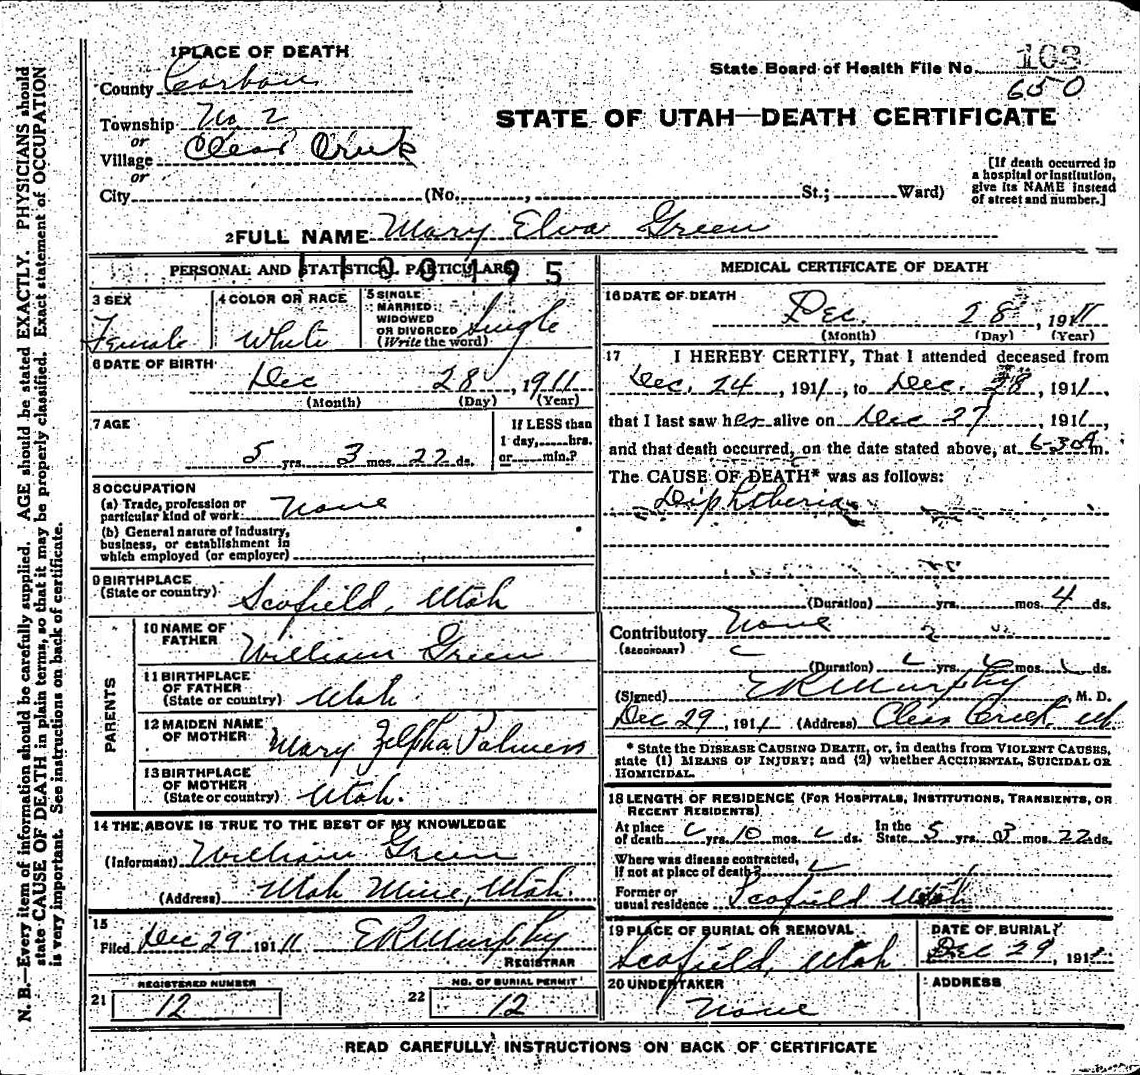 1 PLACE OF DEATH
County Carbon
Township No 2
or
Village Clear Creek
or
City (No. , St.; Ward)
State Board of Health File No. 103
650
STATE OF UTAH—DEATH CERTIFICATE
[If death occurred in
a hospital or institution,
give its NAME instead
of street and number.]
2 FULL NAME Mary Elva Green
PERSONAL AND STATISTICAL PARTICULARS
1100195
3 SEX
Female
4 COLOR OR RACE
White
5 SINGLE
MARRIED
WIDOWED
OR DIVORCED
(Write the word)
Single
6 DATE OF BIRTH
Dec 28, 1911
(Month) (Day) (Year)
7 AGE
5 yrs. 3 mos. 22 ds.
If LESS than
1 day, hrs.
or min.?
8 OCCUPATION
(a) Trade, profession or
particular kind of work None
(b) General nature of industry,
business, or establishment in
which employed (or employer)
9 BIRTHPLACE
(State or country) Scofield, Utah
PARENTS
10 NAME OF
FATHER William Green
11 BIRTHPLACE
OF FATHER
(State or country) Utah
12 MAIDEN NAME
OF MOTHER Mary Zelpha Palmers
13 BIRTHPLACE
OF MOTHER
(State or country) Utah.
14 THE ABOVE IS TRUE TO THE BEST OF MY KNOWLEDGE
(Informant) William Green
(Address) Utah Mine, Utah.
15
Filed Dec 29 1911 E R Murphy
REGISTRAR
21 REGISTERED NUMBER
12
22 NO. OF BURIAL PERMIT
12
MEDICAL CERTIFICATE OF DEATH
16 DATE OF DEATH
Dec. 28, 1911
(Month) (Day) (Year)
17 I HEREBY CERTIFY, That I attended deceased from
Dec. 24, 1911, to Dec. 28, 1911,
that I last saw her alive on Dec 27, 1911,
and that death occurred, on the date stated above, at 6-30A m.
The CAUSE OF DEATH* was as follows:
Diphtheria
(Duration) yrs. mos. 4 ds.
Contributory None
(SECONDARY)
(Duration) yrs. mos. ds.
(Signed) E R Murphy, M. D.
Dec 29, 1911 (Address) Clear Creek, Ut
* State the DISEASE CAUSING DEATH, or, in deaths from VIOLENT CAUSES,
state (1) MEANS OF INJURY; and (2) whether ACCIDENTAL, SUICIDAL OR
HOMICIDAL.
18 LENGTH OF RESIDENCE (FOR HOSPITALS, INSTITUTIONS, TRANSIENTS, OR
RECENT RESIDENTS)
At place
of death yrs. 10 mos. ds. In the
State 5 yrs. 3 mos. 22 ds.
Where was disease contracted,
If not at place of death?
Former or
usual residence Scofield Utah
19 PLACE OF BURIAL OR REMOVAL
Scofield, Utah
DATE OF BURIAL
Dec 29, 1911
20 UNDERTAKER
None
ADDRESS
READ CAREFULLY INSTRUCTIONS ON BACK OF CERTIFICATE
N. B.—Every item of information should be carefully supplied. AGE should be stated EXACTLY. PHYSICIANS should
state CAUSE OF DEATH in plain terms, so that it may be properly classified. Exact statement of OCCUPATION
is very important. See instructions on back of certificate.